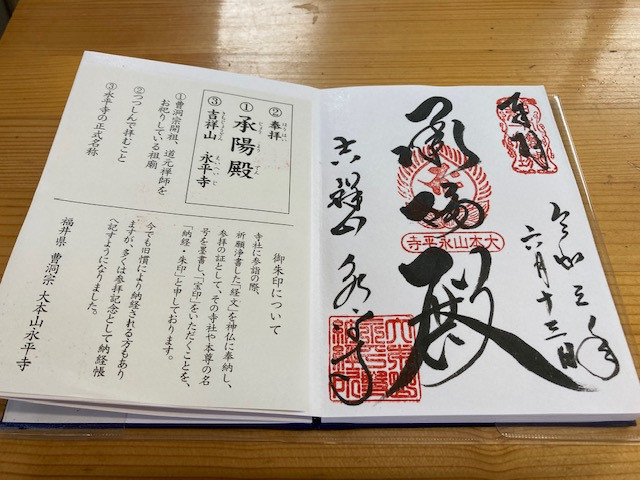 ②奉拝
ほうはい
①承陽殿
じょうようでん
③吉祥山　永平寺
きちじょうざん　えいへいじ
①曹洞宗開祖、道元禅師を
お祀りしている祖廟
②つつしんで拝むこと
③永平寺の正式名称
御朱印について
寺社に参詣の際、
祈願浄書した「経文」を神仏に奉納し、
参拝の証として、その寺社や本尊の名
号を墨書し、「宝印」をいただくことを、
「納経・朱印」と申しております。
今でも旧慣により納経される方もあり
ますが、多くは参拝記念として納経帳
へ記すようになりました。
福井県　曹洞宗　大本山永平寺
奉拝
令和三年
六月十三日
承陽殿
大本山永平寺
吉祥山　永平寺